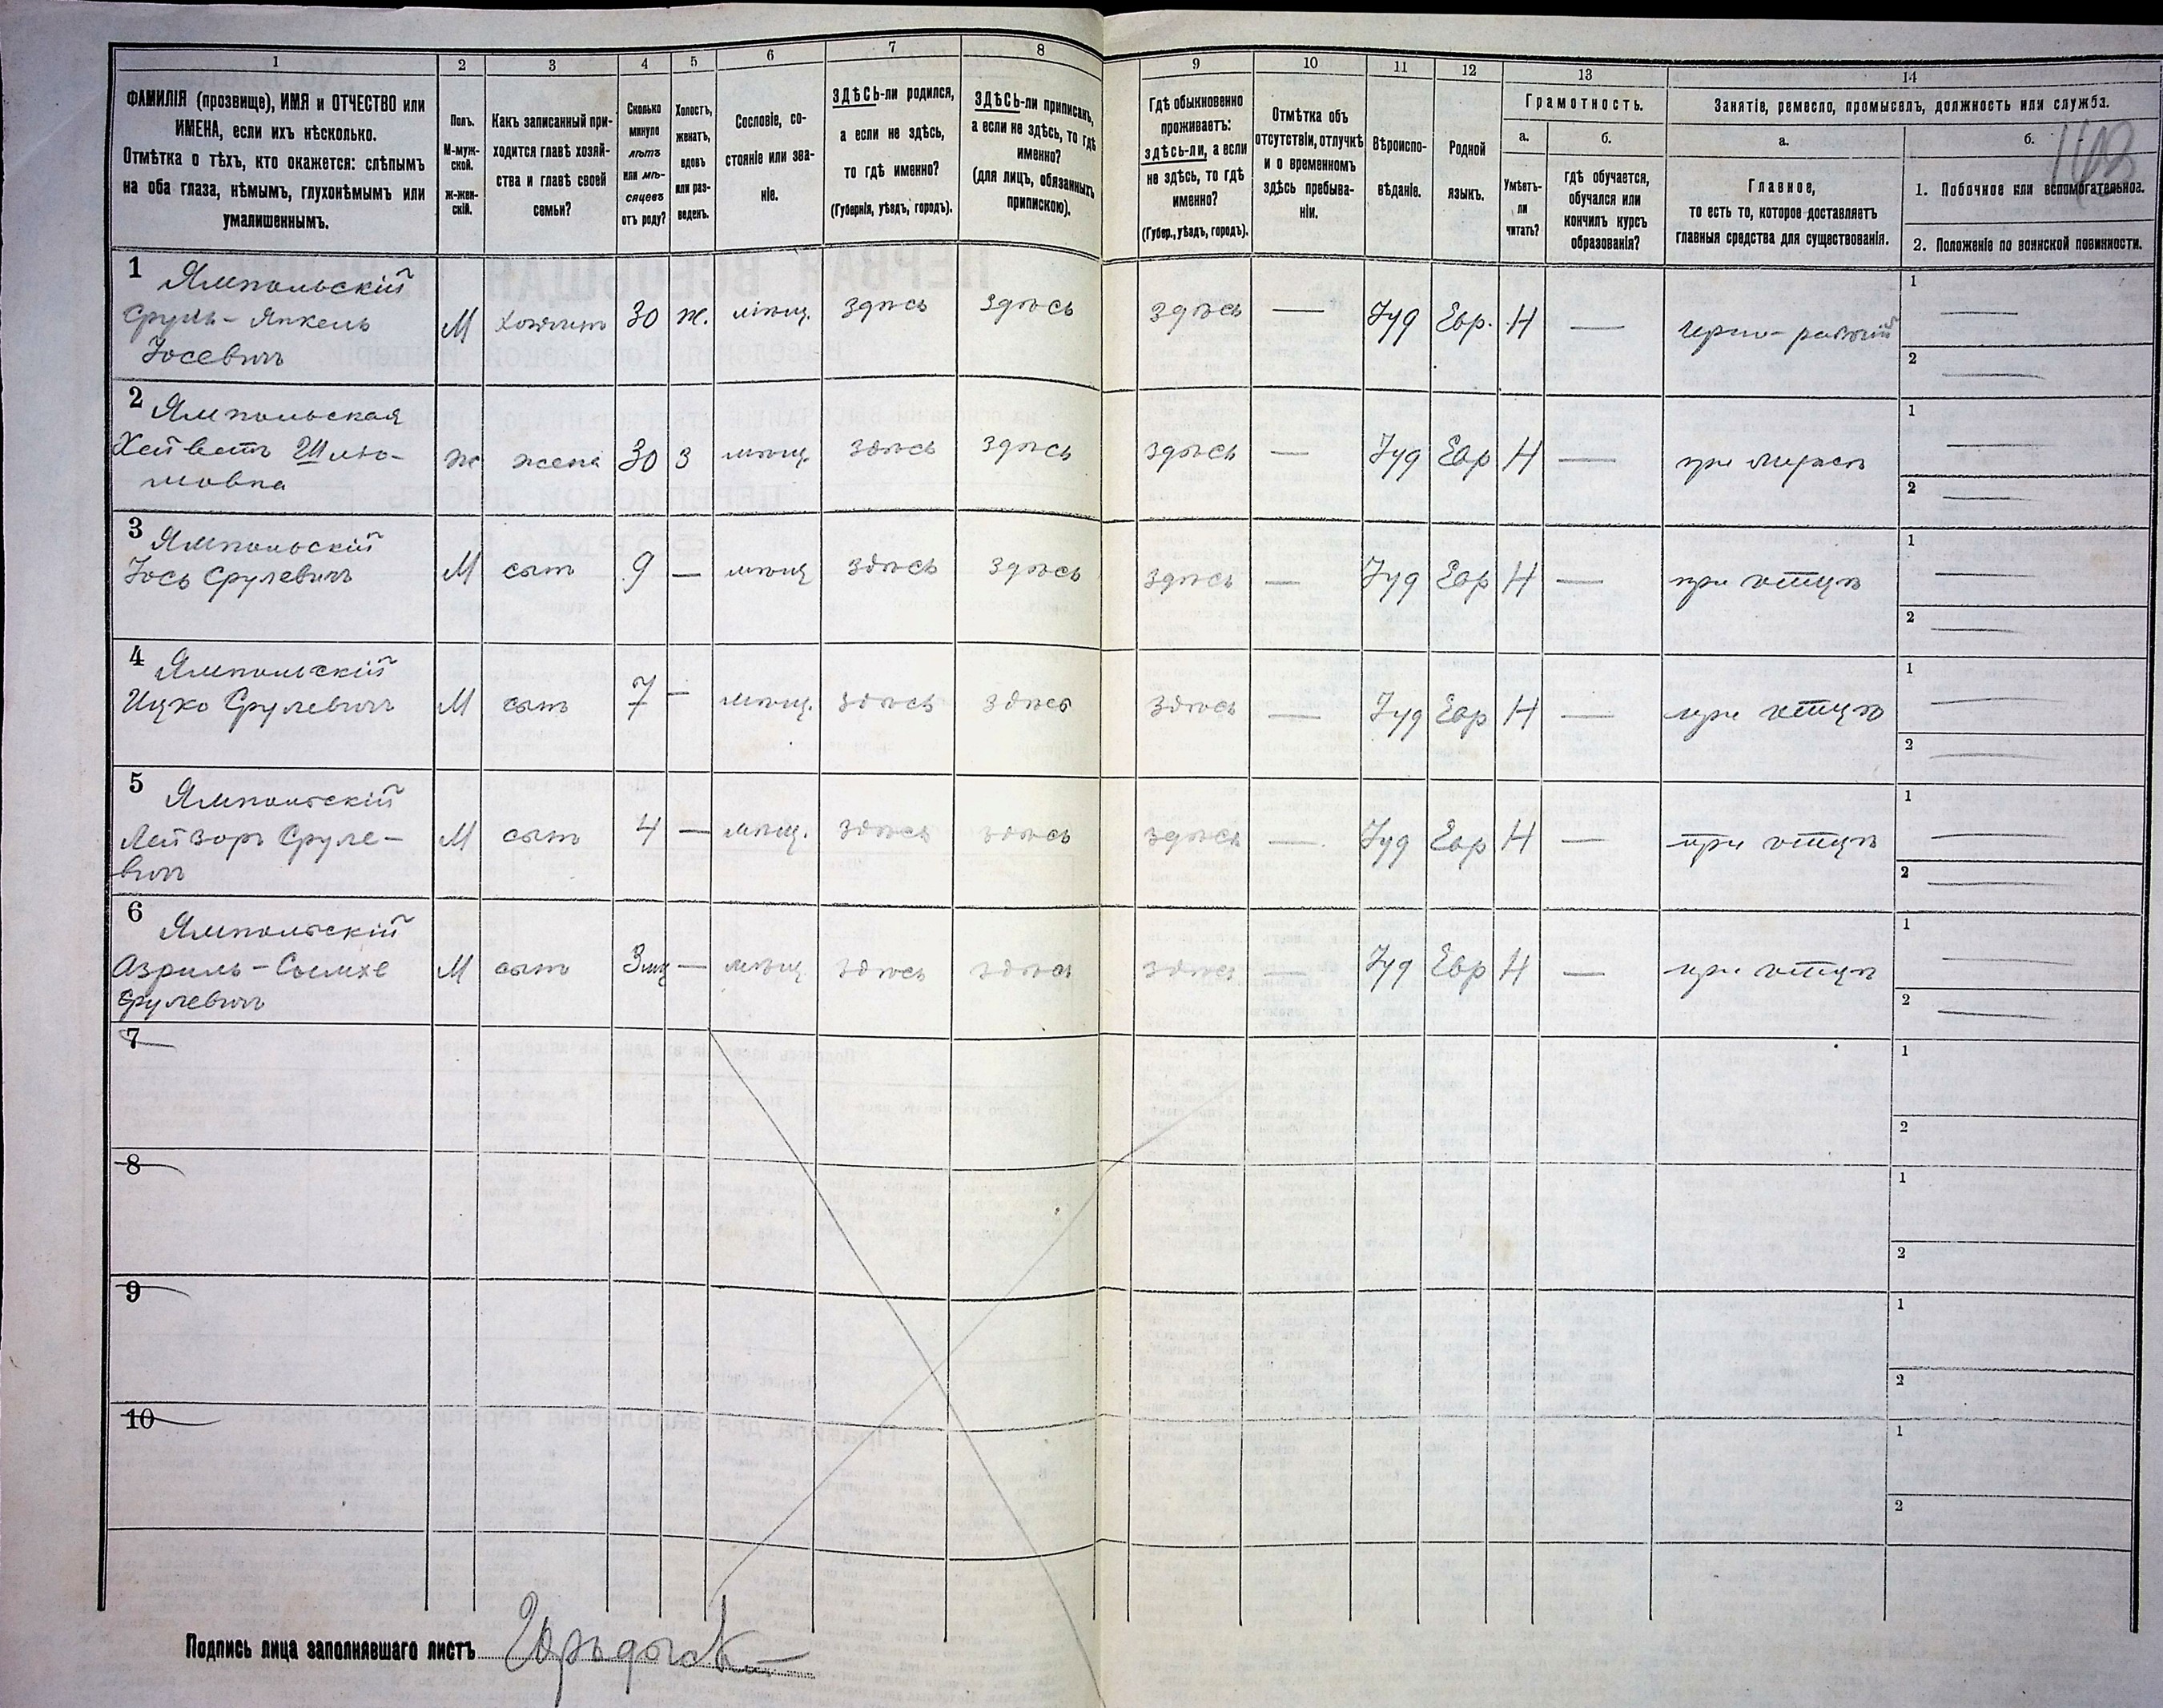 1 2 3 4 5 6 7 8 9 10 11 12 13 14
ФАМИЛІЯ (прозвище), ИМЯ и ОТЧЕСТВО или
ИМЕНА, если ихъ нѣсколько.
Отмѣтка о тѣхъ, кто окажется: слѣпымъ
на оба глаза, нѣмымъ, глухонѣмымъ или
умалишеннымъ.
Полъ.
М-муж-
ской.
ж-жен-
скій.
Какъ записанный при-
ходится главѣ хозяй-
ства и главѣ своей
семьи?
Сколько
минуло
лѣтъ
или мѣ-
сяцевъ
отъ роду?
Холостъ,
женатъ,
вдовъ
или раз-
веденъ.
Сословіе, со-
стояніе или зва-
ніе.
ЗДѢСЬ-ли родился,
а если не здѣсь,
то гдѣ именно?
(Губернія, уѣздъ, городъ).
ЗДѢСЬ-ли приписанъ,
а если не здѣсь, то гдѣ
именно?
(для лицъ, обязанныхъ
припискою).
Гдѣ обыкновенно
проживаетъ:
здѣсь-ли, а если
не здѣсь, то гдѣ
именно?
(Губер., уѣздъ, городъ).
Отмѣтка объ
отсутствіи, отлучкѣ
и о временномъ
здѣсь пребыва-
ніи.
Вѣроиспо-
вѣданіе.
Родной
языкъ.
Грамотность.
а.
Умѣетъ-
ли
читать?
б.
гдѣ обучается,
обучался или
кончилъ курсъ
образованія?
Занятіе, ремесло, промыселъ, должность или служба.
а.
Главное,
то есть то, которое доставляетъ
главныя средства для существованія.
б.
1. Побочное или вспомогательное.
2. Положеніе по воинской повинности.
1 Ямпольскій
Сруль-Янкель
Іосевичъ
М хозяинъ 30 ж. мѣщ. здѣсь здѣсь здѣсь — Іуд Евр. Н — черно-рабочій
1 —
2 —
2 Ямпольская
Хейветъ Шлю-
мовна
ж жена 30 з мѣщ. здѣсь здѣсь здѣсь — Іуд Евр Н — при мужѣ
1 —
2 —
3 Ямпольскій
Іось Срулевичъ
М сынъ 9 — мѣщ здѣсь здѣсь здѣсь — Іуд Евр Н — при отцѣ
1 —
2 —
4 Ямпольскій
Ицко Срулевичъ
М сынъ 7 — мѣщ. здѣсь здѣсь здѣсь — Іуд Евр Н — при отцѣ
1 —
2 —
5 Ямпольскій
Лейзоръ Сруле-
вичъ
М сынъ 4 — мѣщ. здѣсь здѣсь здѣсь — Іуд Евр Н — при отцѣ
1 —
2 —
6 Ямпольскій
Азриль-Сымхе
Срулевичъ
М сынъ 3 мц — мѣщ здѣсь здѣсь здѣсь — Іуд Евр Н — при отцѣ
1 —
2 —
7
1
2
8
1
2
9
1
2
10
1
2
Подпись лица заполнявшаго листъ